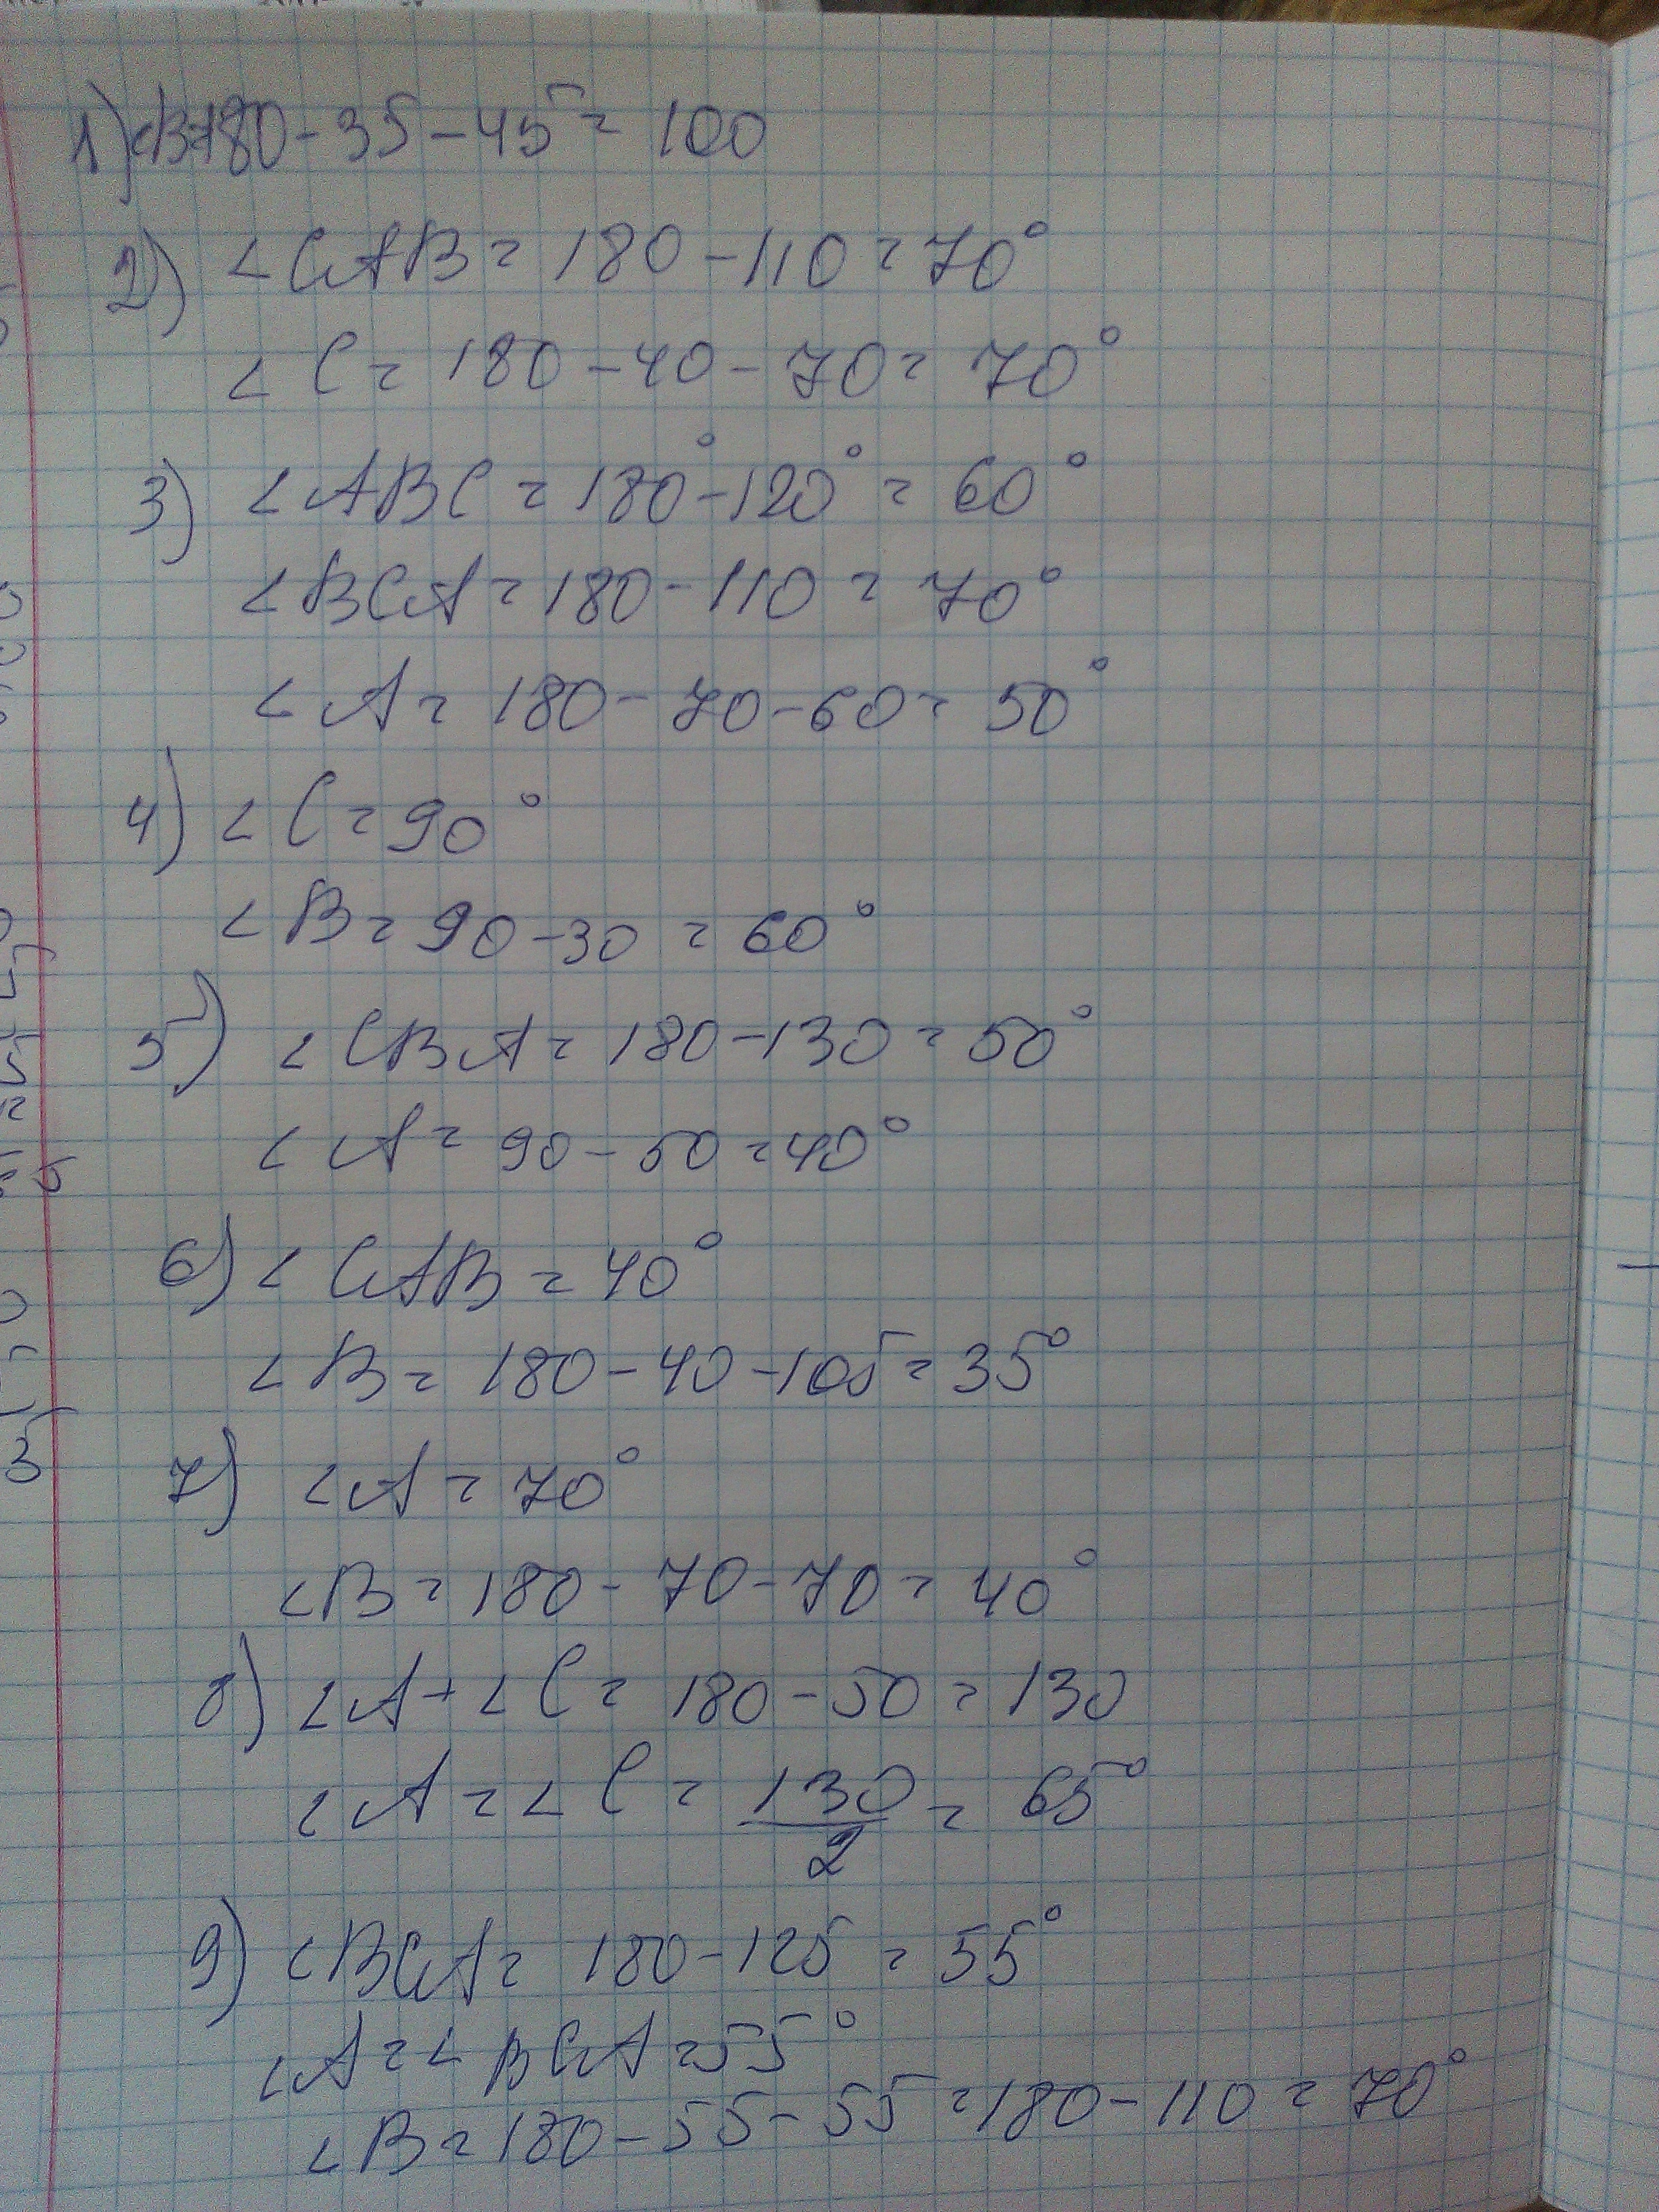 1) <B=180-35-45=100
2) <CAB=180-110=70°
<C=180-40-70=70°
3) <ABC=180°-120°=60°
<BCA=180-110=70°
<A=180-70-60=50°
4) <C=90°
<B=90-30=60°
5) <CBA=180-130=50°
<A=90-50=40°
6) <CAB=40°
<B=180-40-105=35°
7) <A=70°
<B=180-70-70=40°
8) <A+<C=180-50=130
<A=<C=130/2=65°
9) <BCA=180-125=55°
<A=<BCA=55°
<B=180-55-55=180-110=70°